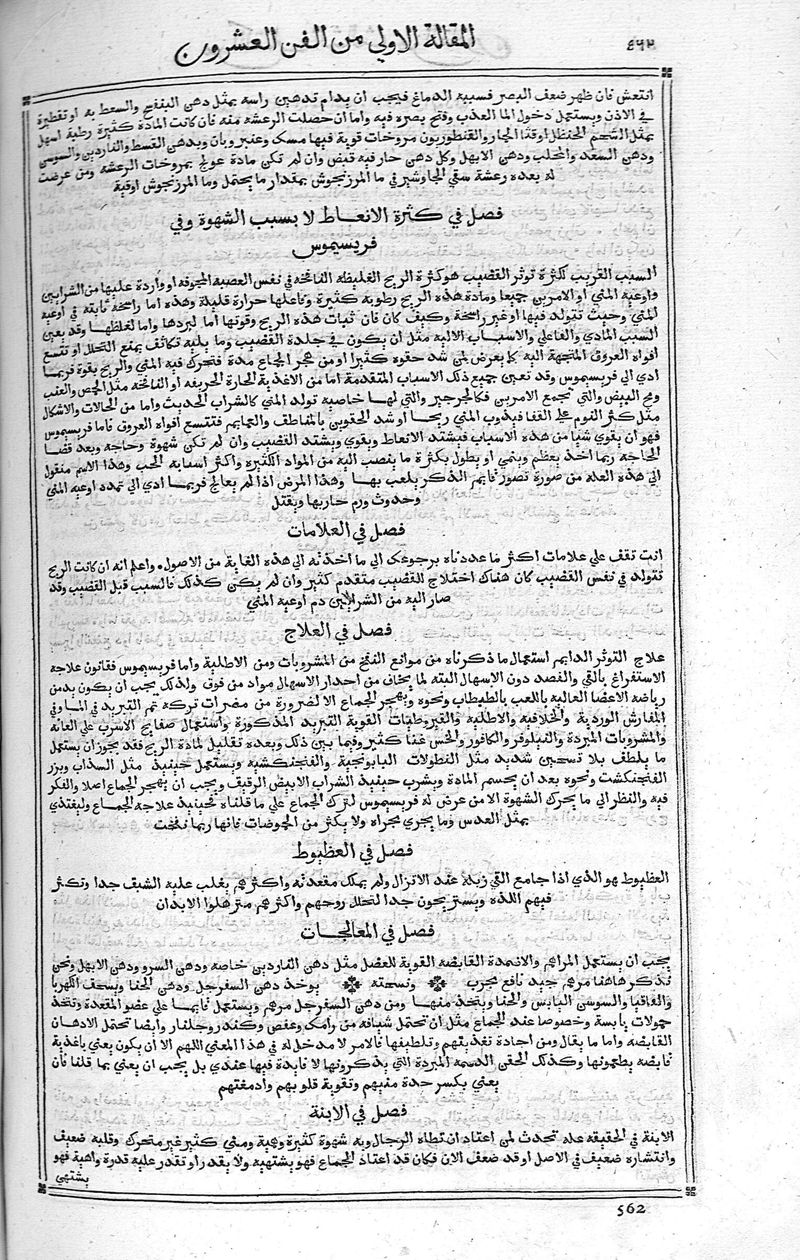 ٤٦٢
المقالة الاولي من الفن العشرون
انتعش فان ظهر ضعف البصر فسببه الدماغ فيجب ان يدام تدهين راسه بمثل دهن البنفسج والسعط به او تقطيرة
في الاذن ويستعمل دخول الما العذب وفتح بصره فيه واما ان حصلت الرعشة منه فان كانت المادة كثيرة رطبة اسهل
بمثل الشحم الحنظل او قثا الحمار والقنطوريون مروخات قوية فيها مسك وعنبر وبان وبدهن القسط والناردين والسوسن
ودهن السعد والمحلب ودهن الابهل وكل دهن حار فيه قبض وان لم تكن مادة عولج بمروخات الرعشة ومن عرضت
له بعده رعشة سقي الجاوشير في ما المرزنجوش بمقدار ما يحتمل وما المرزنجوش اوقية
فصل في كثرة الانعاظ لا بسبب الشهوة وفي
فريسيموس
السبب القريب لكثرة توثر القضيب هو كثرة الريح الغليظة النافخة في نفس العصبة المجوفة او واردة عليها من الشرايين
واوعية المني او الامرين جميعا ومادة هذه الريح رطوبة كثيرة وفاعلها حرارة قليلة وهذه اما راسخة ثابتة في اوعية
المني وحيث تتولد فيها او غير راسخة وكيف كان فان ثبات هذه الريح وقوتها اما لبردها واما لغلظها وقد يعين
السبب المادي والفاعلي والاسباب الالية مثل ان يكون في جلدة القضيب وما يليه تكاثف يمنع التحلل او تتسع
افواه العروق المتجهة اليه كما يعرض لمن شد حقوه كثيرا او من عجز الجماع مدة فتحرك فيه المني والريح بقوة فربما
ادي الي فريسيموس وقد تعين جميع ذلك الاسباب المتقدمة اما من الاغذية الحارة الحريفه او النافخة مثل الحمص والعنب
ومح البيض والتي تجمع الامرين فكالجرجير والتي لها خاصية تولد المني كالشراب الحديث واما من الحالات والاشكال
مثل كثر النوم علي القفا فيذوب المني ريحا او شد الحقوين بالمناطق والعمايم فتتسع افواه العروق فاما فريسيموس
فهو ان يقوي شيا من هذه الاسباب فيشتد الانعاظ ويقوي ويشتد القضيب وان لم تكن شهوة وحاجة وبعد قضا
الحاجة ربما اخذ يعظم وينمي او يطول بكثرة ما ينصب اليه من المواد الكثيرة واكثر اسبابه الحب وهذا الاسم منقول
الي هذه العلة من صورة تصور قايم الذكر يلعب بها وهذا المرض اذا لم يعالج فربما ادي الي تمدد اوعية المني
وحدوث ورم حار بها ويقتل
فصل في العلامات
انت تقف علي علامات اكثر ما عددناه برجوعك الي ما اخذته الي هذه الغاية من الاصول واعلم انه ان كانت الريح
تتولد في نفس القضيب كان هناك اختلاج للقضيب متقدم كثير وان لم يكن كذلك فالسبب قبل القضيب وقد
صار اليه من الشرايين دم اوعية المني
فصل في العلاج
علاج التوثر الدايم استعمال ما ذكرناه من موانع النفخ من المشروبات ومن الاطلية واما فريسيموس فقانون علاجه
الاستفراغ بالقي والفصد دون الاسهال البته لما يخاف من احدار الاسهال مواد من فوق ولذلك يجب ان يكون بدمن
رياضة الاعضا العالية باللعب بالطبطاب ونحوه ويهجر الجماع الا لضرورة من مضرات تركه ثم التبريد في الماوفي
المفارش الوردية والخلافية والاطلية والقيروطيات القوية التبريد المذكورة واستعمال صفايح الاسرب علي العانة
والمشروبات المبردة والنيلوفر والكافور والخس غنا كثير وفيما بين ذلك وبعده تقليل لمادة الريح فقد يجوز ان يستعمل
ما يلطف بلا تسخين شديد مثل النطولات البابونجية والفنجنكشتية ويستعمل حينيذ مثل السذاب وبزر
الفنجنكشت ونحوه بعد ان يحسم المادة ويشرب حينيذ الشراب الابيض الرقيق ويجب ان يهجر الجماع اصلا والفكر
فيه والنظر الي ما يحرك الشهوة الا من عرض له فريسيموس لترك الجماع علي ما قلناه فحينيذ علاجه الجماع وليغتذي
بمثل العدس وما يجري مجراه ولا يكثر من الحموضات فانها ربما نفخت
فصل في العظيوط
العظيوط هو الذي اذا جامع القي زبله عند الانزال ولم يملك مقعدته واكثرهم يغلب عليه الشبق جدا وتكثر
فيهم اللذة ويستريحون جدا لتحلل روحهم واكثرهم مترهلوا الابدان
فصل في المعالجات
يجب ان يستعمل المراهم والاضمدة القابضة القوية للعضل مثل دهن الناردين خاصه ودهن السرو ودهن الابهل ونحن
نذكر هاهنا مرهم جيد نافع مجرب ونسخته يوخذ دهن السفرجل ودهن الحنا ويسحق الكهربا
والقاقيا والسوسن اليابس والحنا ويتخذ منها ومن دهن السفرجل مرهم ويستعمل نايما علي عضو المقعدة وتتخذ
حمولات يابسة وخصوصا عند الجماع مثل ان تحتمل شيافة من رامك وعفص وكندر وجلنار وايضا تحتمل الادهان
القابضة واما ما يقال ومن اجادة تغذيتهم وتلطيفها فالامر لا مدخل له في هذا المعني اللهم الا ان يكون يعني باغذية
قابضة يطعمونها وكذلك الحقن الدسمه المبردة التي يذكرونها لا فايدة فيها عندي بل يجب ان يعني بما قلنا فان
يعني بكسر حدة منيهم وتقوية قلوبهم وادمغتهم
فصل في الابنة
الابنة في الحقيقة علة تحدث لمن اعتاد ان تطاه الرجال وبه شهوة كثيرة وهمية ومني كثير غير متحرك وقلبه ضعيف
وانتشاره ضعيف في الاصل او قد ضعف الان فكان قد اعتاد الجماع فهو يشتهيه ولا يقدر او تقدر عليه قدرة واهية فهو
يشتهي
562